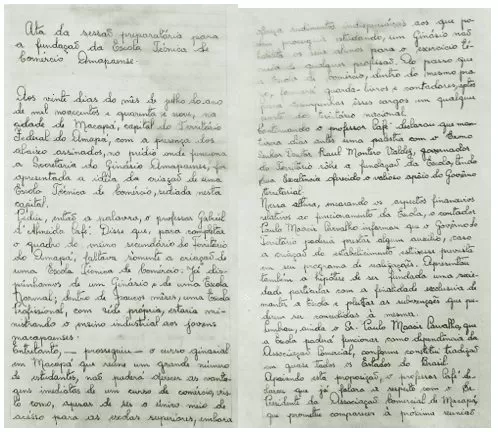 Ata da sessão preparatória para
a fundação da Escola Técnica de
Comércio Amapaense.
Aos vinte dias do mês de julho do ano
de mil novecentos e quarenta e nove, na
cidade de Macapá, capital do Território
Federal do Amapá, com a presença dos
abaixo assinados, no prédio onde funciona
a Secretaria do Ginásio Amapaense, foi
apresentada a idéia da criação de uma
Escola Técnica de Comércio, sediada nesta
capital.
Pediu, então a palavra, o professor Gabriel
d'Almeida Café. Disse que, para completar
o quadro do ensino secundário do Território
do Amapá, faltava somente a criação de
uma Escola Técnica de Comércio. Já dis-
púnhamos de um Ginásio e de uma Escola
Normal; dentro de poucos mêses, uma Escola
Profissional, com séde própria, estaria mi-
nistrando o ensino industrial aos jovens
macapaenses.
Entretanto, — prosseguiu — o curso ginasial
em Macapá que reúne um grande número
de estudantes, não poderá oferecer as vanta-
gens imediatas de um curso de comércio, vis-
to como, apesar de ser o único meio de
acésso para as escolas superiores, embora
ofereça rudimentos indispensáveis aos que po-
dem prosseguir estudando, um Ginásio não
os seus alunos para o exercício téc-
nico de qualquer profissão. Ao passo que
a Escola de Comércio, dentro do mesmo pra-
zo, formará guarda-livros e contadores, aptos
para desempenhar êsses cargos em qualquer
ponto do território nacional.
Continuando o professor Café declarou que man-
tivera dias antes uma palestra com o Exmo
Senhor Doutor Raul Montero Valdez, governador
do Território sôbre a fundação da Escola, tendo
Sua Excelência oferecido o valioso apoio do Govêrno
Territorial.
Nessa altura, encarando os aspectos financeiros
relativos ao funcionamento da Escola, o contador
Paulo Moacir Carvalho informou que o Govêrno do
Território poderia prestar algum auxílio, caso
a criação do estabelecimento estivesse prevista
em seu programa de realizações. Apresentou
também a hipótese de ser fundada uma socie-
dade particular com a finalidade exclusiva de
manter a Escola e pleitear as subvenções que pu-
dessem ser concedidas à mesma.
Lembrou, ainda o Sr. Paulo Moacir Carvalho, que
a Escola poderia funcionar como dependência da
Associação Comercial, conforme constitui tradição
em quase todos os Estados do Brasil.
Apoiando esta proposição, o professor Café de-
clarou que já falara a respeito com o Sr.
Presidente da Associação Comercial de Macapá,
que prometeu comparecer à próxima reunião